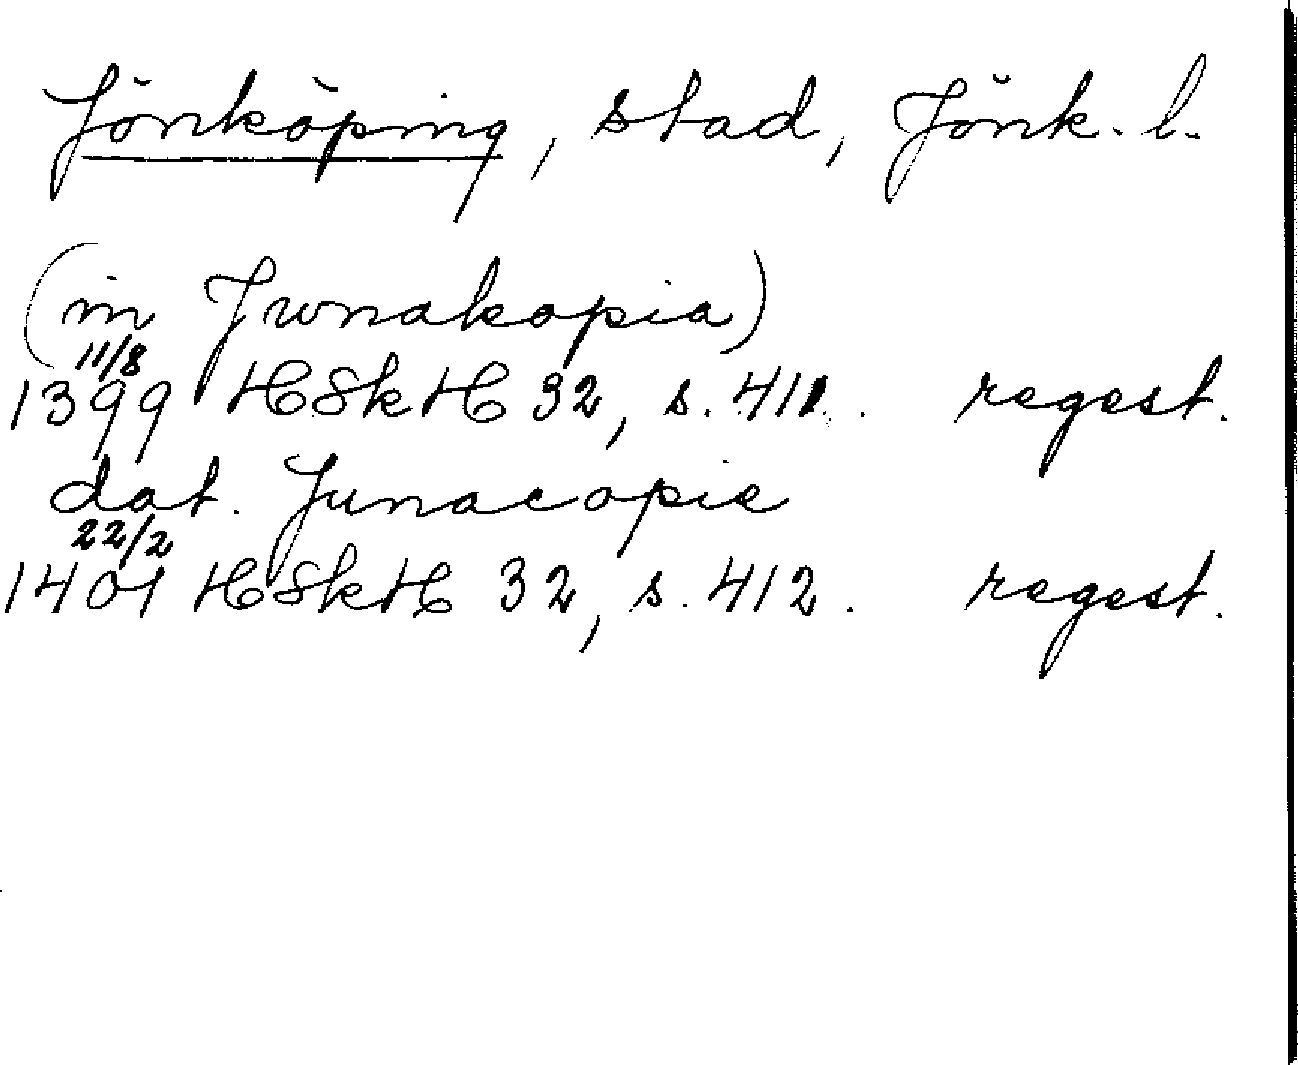 Jönköping, stad, Jönk. l.
(in Jwnakopia)
11/8
1399 HSkH 32, s. 411. regest.
dat. Junacopie
22/2
1401 HSkH 32, s. 412. regest.